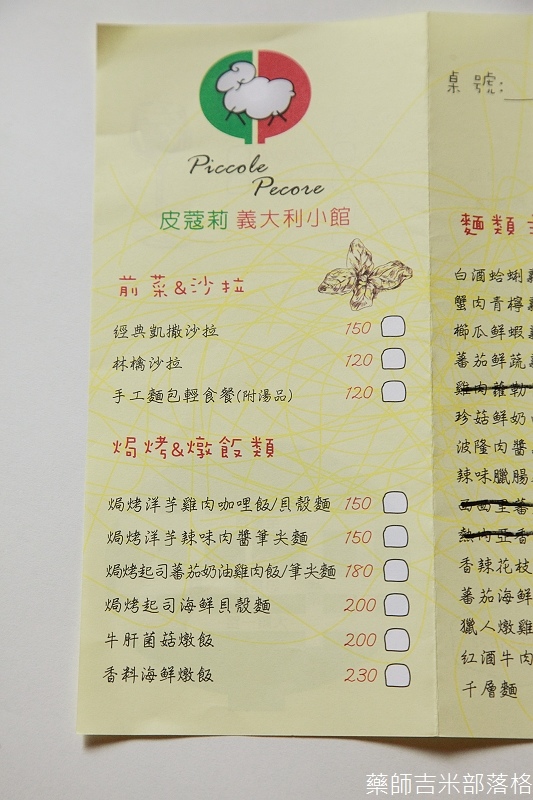 Piccole
Pecore
皮蔻莉 義大利小館
前菜&沙拉
經典凱撒沙拉 150
林檎沙拉 120
手工麵包輕食餐(附湯品) 120
焗烤&燉飯類
焗烤洋芋雞肉咖哩飯/貝殼麵 150
焗烤洋芋辣味肉醬筆尖麵 150
焗烤起司蕃茄奶油雞肉飯/筆尖麵 180
焗烤起司海鮮貝殼麵 200
牛肝菌菇燉飯 200
香料海鮮燉飯 230
桌號:
麵類
白酒蛤蜊
蟹肉青檸
櫛瓜鮮蝦
蕃茄鮮蔬
雞肉蘿勒
珍菇鮮奶
波隆肉醬
辣味臘腸
西西里蕃
香辣花枝
蕃茄海鮮
獵人燉雞
紅酒牛肉
千層麵
藥師吉米部落格